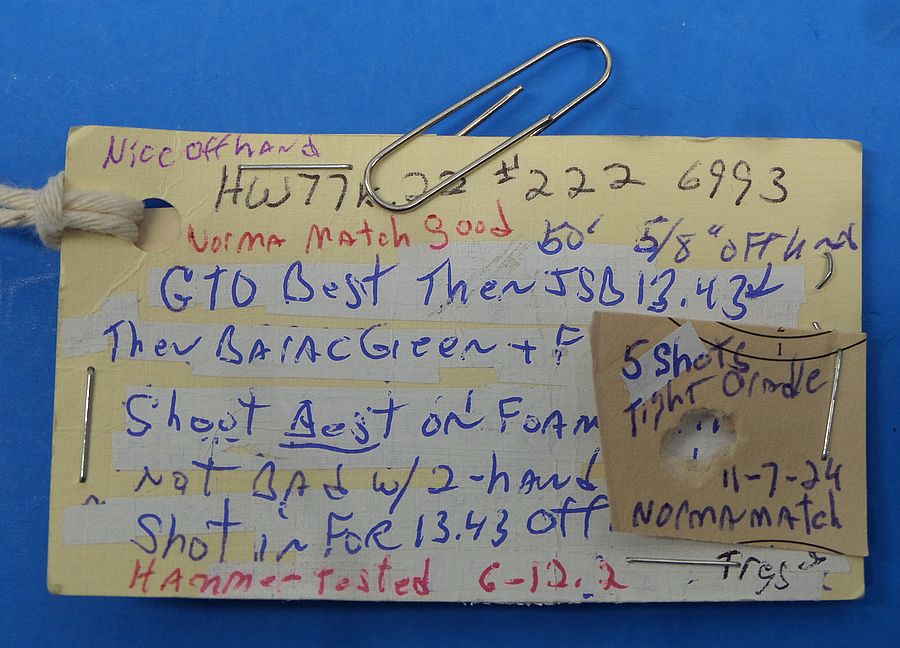 Nice offhand
HW77k .22 # 222 6993
Norma Match good 50' 5/8" offhand
GTO Best Then JSB 13.43
Then Barac Green + F
Shoot Best on Foam
Not Bad w/ 2-hand
Shot in For 13.43 Off
Hammer Tested 6-12.2
1
5 Shots
Tight
11-7-24
Norma Match